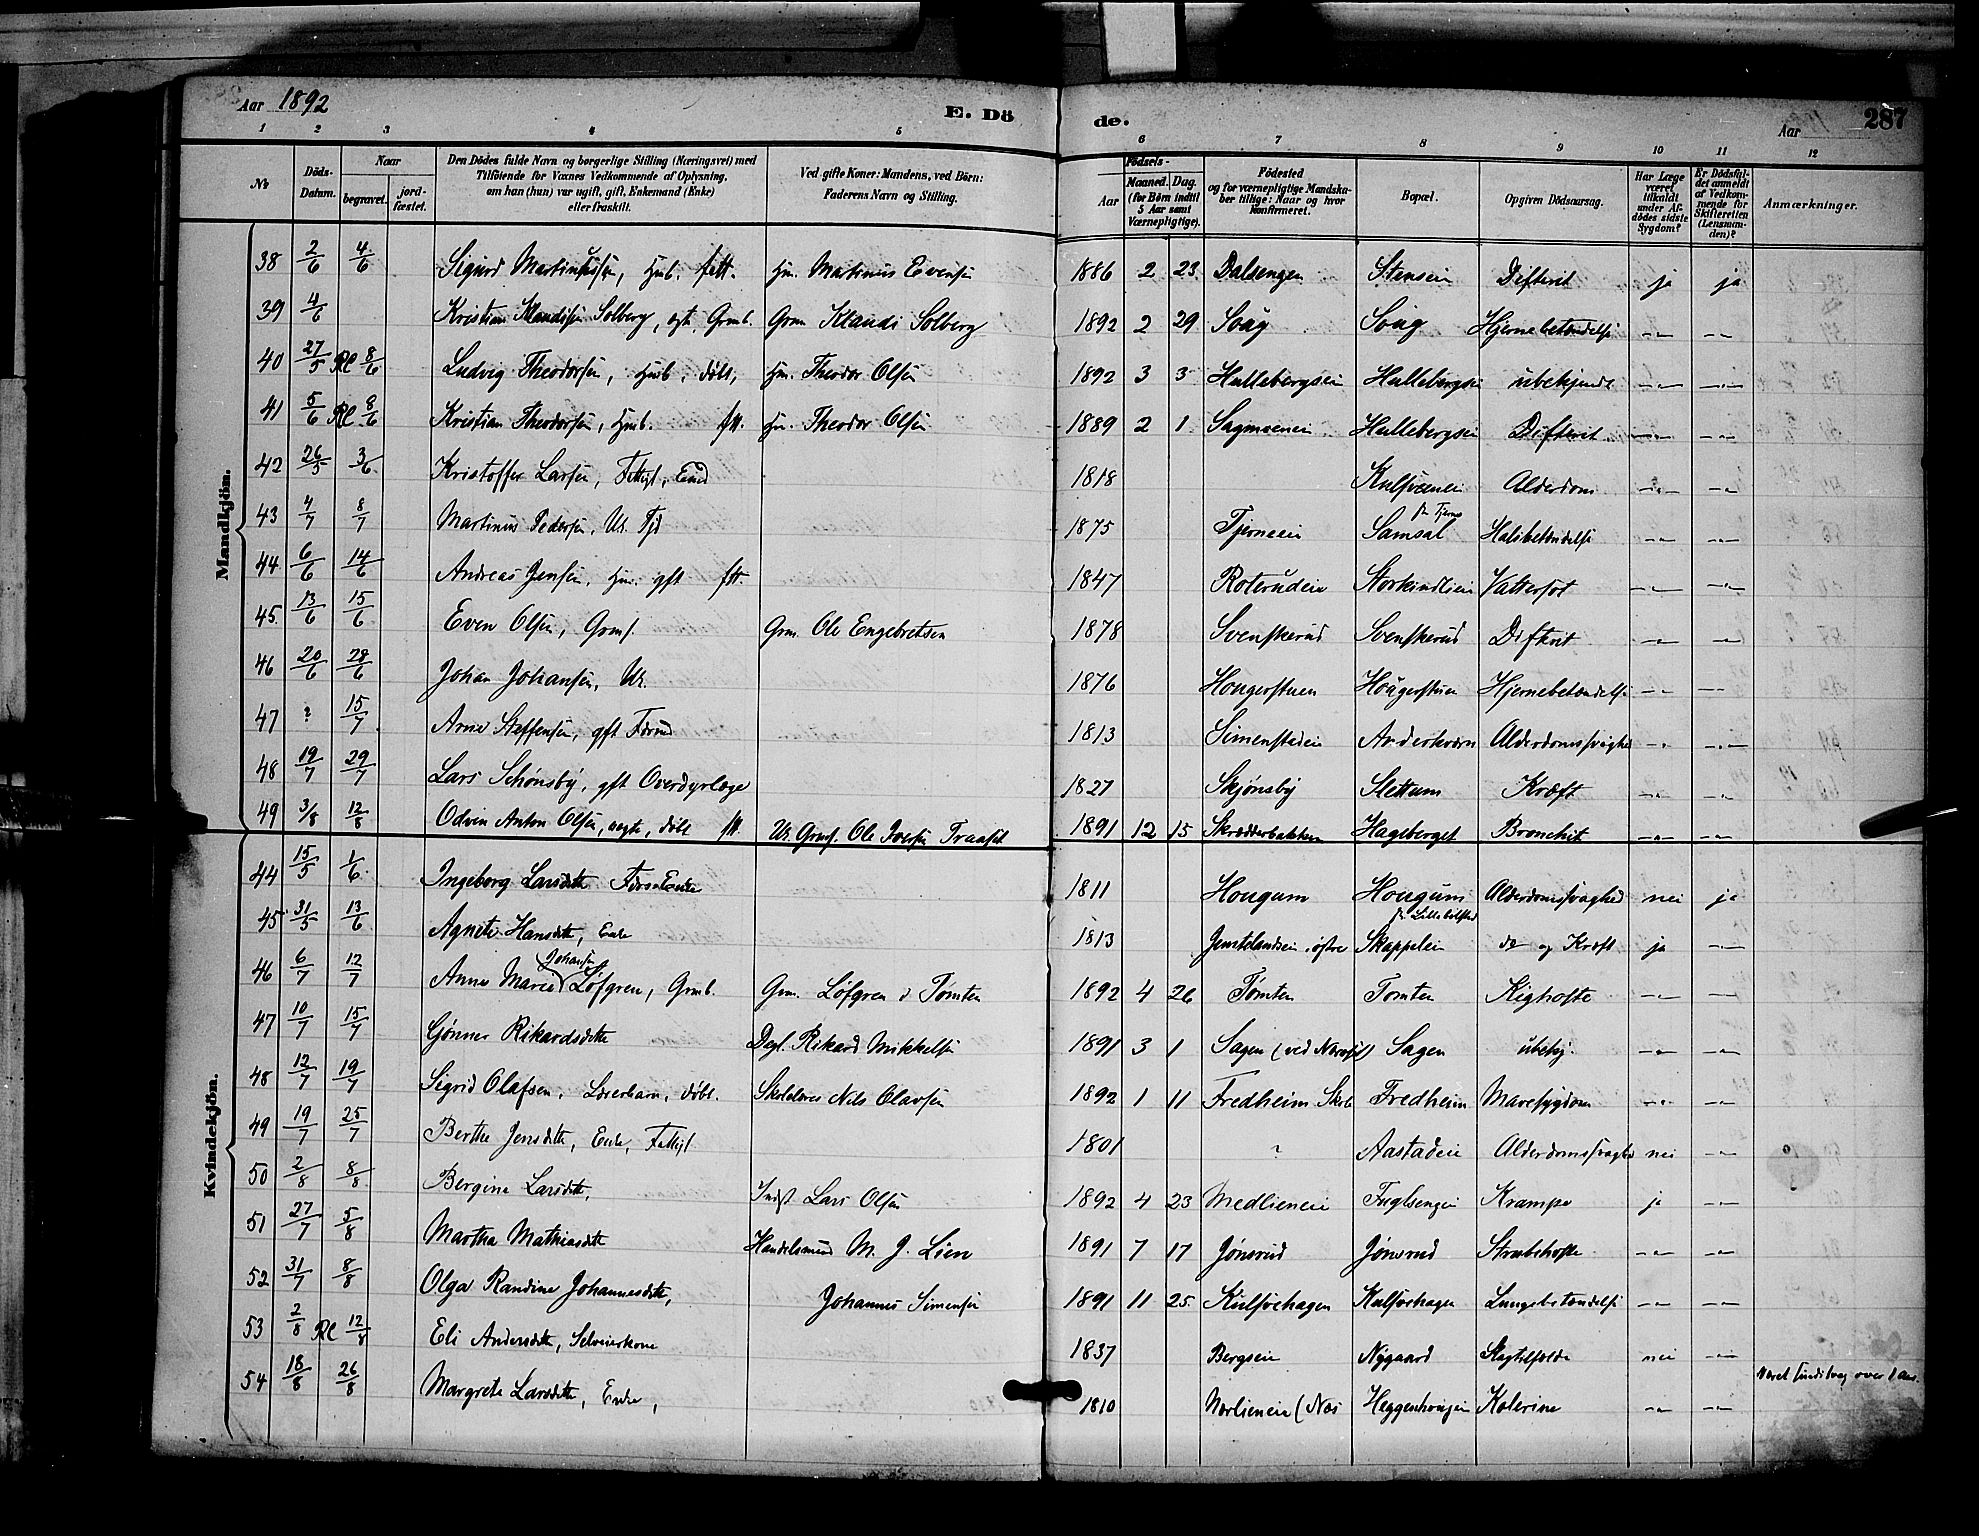 Aar 1892 E. Döde. Aar 287
1 2 3 4 5 6 7 8 9 10 11 12
No Döds-Datum. Naar begravet. jordfæstet. Den Dödes fulde Navn og borgerlige Stilling (Næringsvei) med Tilföiende for Voxnes Vedkommende af Oplysning, om han (hun) var ugift, gift, Enkemand (Enke) eller fraskilt. Ved gifte Koner: Mandens, ved Börn: Faderens Navn og Stilling. Födsels- Aar Maaned. Dag. (for Börn indtil 5 Aar samt Værnepligtige). Födested og for værnepligtige Mandskaber tillige: Naar og hvor konfirmeret. Bopæl. Opgiven Dödsaarsag. Har Læge været tilkaldt under Afdödes sidste Sygdom? Er Dödsfaldet anmeldt af Vedkommende for Skifteretten (Lensmanden)? Anmærkninger.
Mandkjön.
38 2/6 4/6 Sigurd Martinussen, Hmb. fatt. Hm. Martinus Evensen 1886 2 23 Dalsengen Stenseie Difterit ja ja
39 4/6 Kristian Klaudisen Solberg, ægt. Grmb. Grm. Klaudi Solberg 1892 2 29 Soug Soug Hjernebetændelse -"- -"-
40 27/5 Rl 8/6 Ludvig Theodorsen, Hmb, døbt, Hm. Theodor Olsen 1892 3 3 Hullebergseie Hullebergseie ubekjendt -"- -"-
41 5/6 Rl 8/6 Kristian Theodorsen, Hmb. ftt. Hm. Theodor Olsen 1889 2 1 Hullebergseie Difterit -"- -"-
42 26/5 3/6 Kristoffer Larsen, Fattigl, Emd 1818 Alderdom -"- -"-
43 4/7 8/7 Martinus Pedersen, U. Tjd 1875 Tjerneeie Samsal Halsbetændelse -"- -"-
44 6/6 14/6 Andreas Jensen, Hm. gft ftt. 1847 Roterudeie Vattersot -"- -"-
45 13/6 15/6 Even Olsen, Grmf. Grm. Ole Engebretsen 1878 Svenskerud Svenskerud Difterit -"- -"-
46 20/6 28/6 Johan Johansen, U. 1876 Hougerstuen Hougerstuen Hjernebetændelse -"- -"-
47 ? 15/7 Arne Steffensen, gft 1813 Simenstadeie Alderdomssvaghed -"- -"-
48 19/7 29/7 Lars Schønsby, gft Overdyrlæge 1827 Skjønsby Slettum Kræft -"- -"-
49 3/8 12/8 Odvin Anton Olsen, uægte, døbt ftt. U. Grmf. Ole Iversen Traaset 1891 12 15 Skrædderbakken Hageberget Bronchit -"- -"-
Kvindekjön.
44 15/5 1/6 Ingeborg Larsdtr. 1811 Hougum Hougum Alderdomssvaghed nei ja
45 31/5 13/6 Agnete Hansdtr, Enke 1813 østre Skappeleie do og Kræft ja -"-
46 6/7 12/7 Anne Marie Johansen Løfgren, Grmb. Grm. Løfgren i Tømten 1892 4 26 Tømten Tomten Kighoste -"- -"-
47 10/7 15/7 Gjønner Rikardsdtr Dagl. Rikard Mikkelsen 1891 3 1 Sagen Sagen ubekj. -"- -"-
48 12/7 19/7 Sigrid Olafsen, Lærerbarn, døbt. Skolelærer Nils Olavsen 1892 1 11 Fredheim Skole Fredheim Mavesygdom -"- -"-
49 19/7 25/7 Berthe Jensdtr, Enke, Fattigl 1801 ? Aastadeie Alderdomssvaghed nei -"-
50 2/8 8/8 Bergine Larsdtr, Indst Lars Olsen 1892 4 23 Medlieneie Fuglsengen Krampe ja -"-
51 27/7 5/8 Martha Mathiasdtr Handelsmand M. J. Lien 1891 7 17 Jønsrud Jønsrud Strubehoste -"- -"-
52 31/7 8/8 Olga Randine Johannesdtr, Johannes Simensen 1891 11 25 Kulsvehagen Kulsvehagen Lungebetændelse -"- -"-
53 2/8 Rl 12/8 Eli Andersdtr, Selveierkone 1837 Bergseie Nygaard Slagtilfælde nei -"-
54 18/8 26/8 Margrete Larsdtr, Enke, 1810 Kolerine -"- -"- Været sindssvag over 1 Aar.